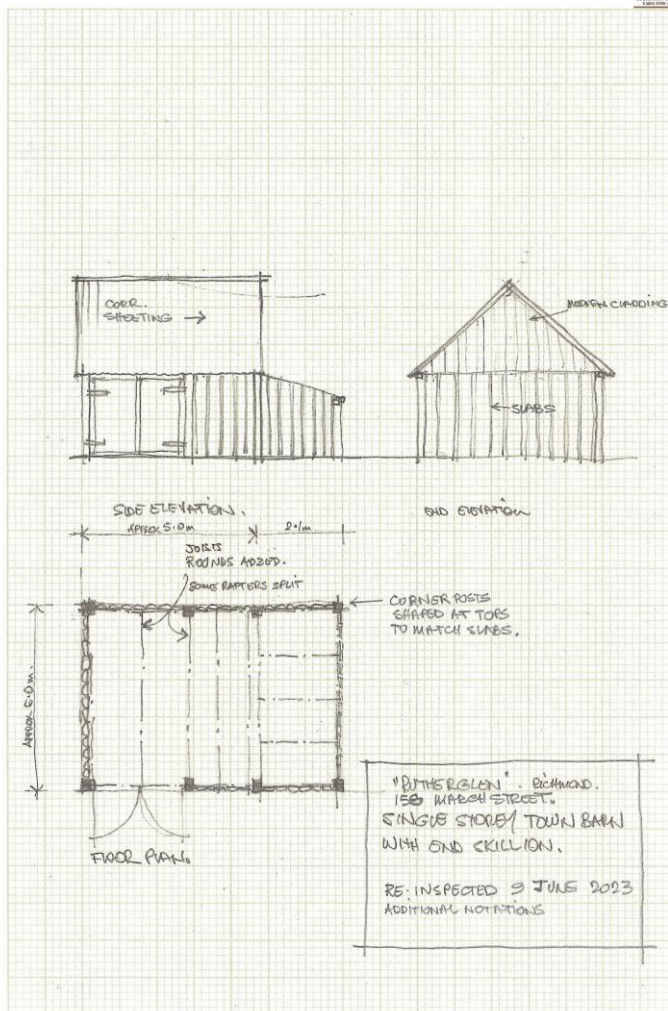 CORR.
SHEETING →
MODERN CLADDING
SLABS
SIDE ELEVATION.
END ELEVATION
APPROX 5.0m
2.1m
JOISTS
ROUNDS ADDED.
SOME RAFTERS SPLIT
CORNER POSTS
SHAPED AT TOPS
TO MATCH SLABS.
APPROX 5.0m.
FLOOR PLAN.
"RUTHERGLEN". RICHMOND.
158 MARCH STREET.
SINGLE STOREY TOWN BARN
WITH END SKILLION.
RE-INSPECTED 9 JUNE 2023
ADDITIONAL NOTATIONS